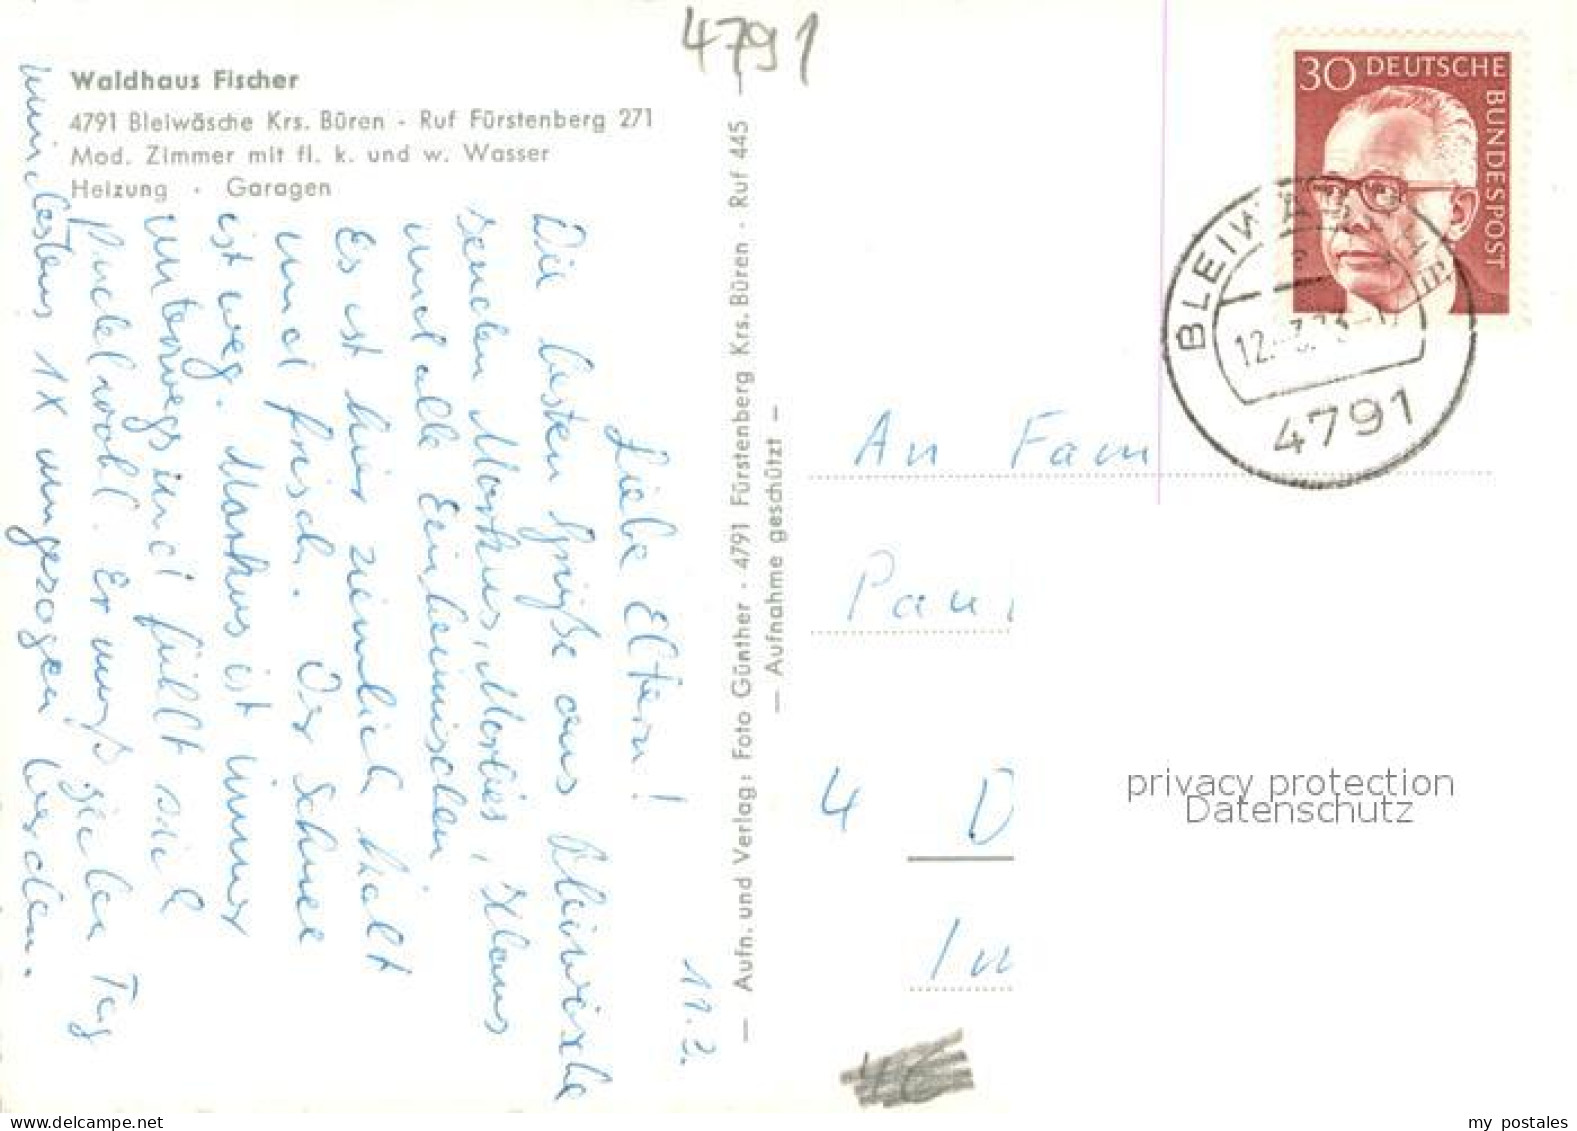 4791
Waldhaus Fischer
4791 Bleiwäsche Krs. Büren - Ruf Fürstenberg 271
Mod. Zimmer mit fl. k. und w. Wasser
Heizung • Garagen
11.3.
Liebe Eltern!
Die besten Grüße aus Bleiwäsche
senden Markus, Marlies, Klaus
und alle Einheimischen
Es ist hier ziemlich kalt
und frisch. Der Schnee
ist weg. Markus ist immer
unterwegs und fühlt sich
pudelwohl. Er muß jeden Tag
mindestens 1x umgezogen werden.
— Aufn. und Verlag: Foto Günther • 4791 Fürstenberg Krs. Büren • Ruf 445
— Aufnahme geschützt —
30 DEUTSCHE
BUNDESPOST
BLEIWÄSCHE
12.-3.
4791
An Fam
Pau
4 D
In
46
privacy protection
Datenschutz
my postales